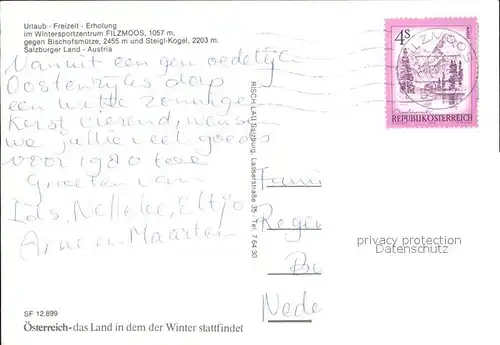 Urlaub - Freizeit - Erholung
im Wintersportzentrum FILZMOOS, 1057 m,
gegen Bischofsmütze, 2455 m und Steigl-Kogel, 2203 m.
Salzburger Land - Austria
Vanuit een genoedelijk
Oostenrijks dorp
een witte zonnige
Kerst vierend, wensen
we jullie veel goeds
voor 1980 toe
Groeten van
Ids, Nelleke, Eltjo
Arne en Maarten
SF 12.899
Österreich - das Land in dem der Winter stattfindet
RISCH-LAU, Salzburg, Lasserstraße 35, Tel. 7 64 30
4S
REPUBLIK ÖSTERREICH
FILZMOOS
Fami
Regen
Nede
privacy protection
Datenschutz